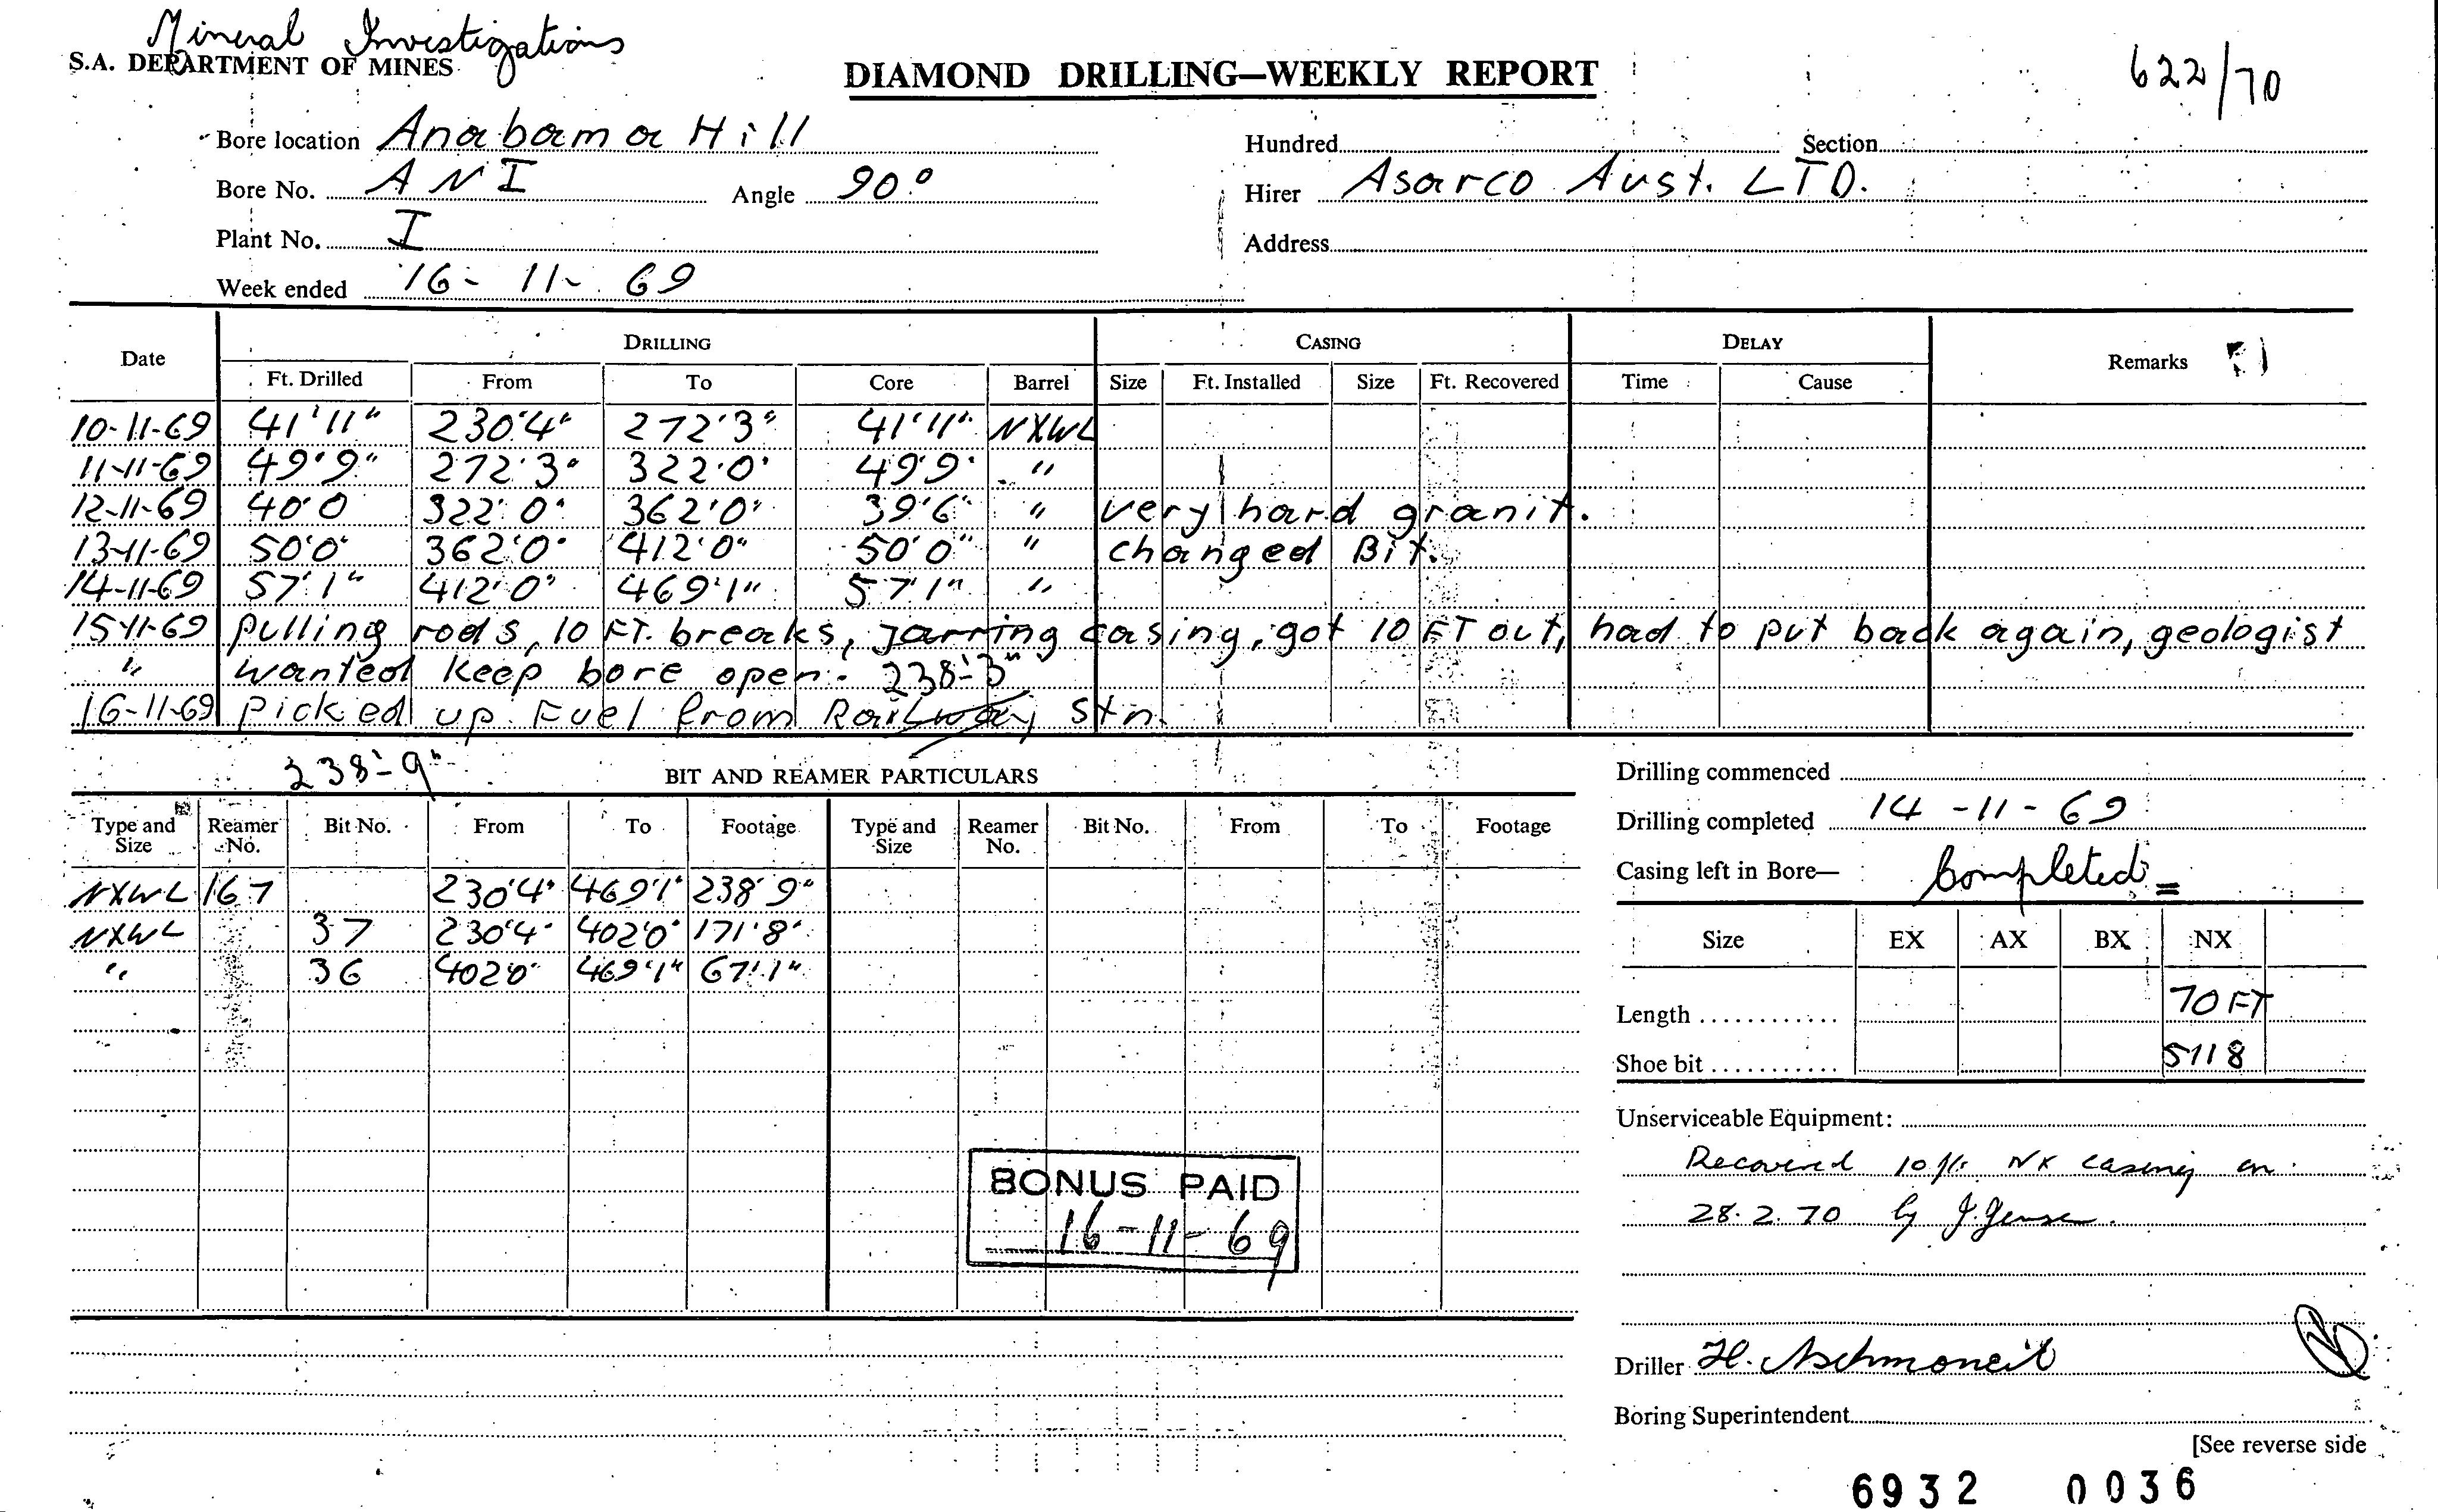 Mineral Investigations
S.A. DEPARTMENT OF MINES
DIAMOND DRILLING—WEEKLY REPORT
622/70
Bore location Anabama Hill
Hundred Section
Bore No. AN I Angle 90°
Hirer Asarco Aust. LTD.
Plant No. I
Address
Week ended 16-11-69
Date DRILLING CASING DELAY Remarks
Ft. Drilled From To Core Barrel Size Ft. Installed Size Ft. Recovered Time Cause
10-11-69 41'11" 230'4" 272'3" 41'11" NXWL
11-11-69 49'9" 272'3" 322'0" 49'9" "
12-11-69 40'0 322'0" 362'0" 39'6" " very hard granit.
13-11-69 50'0" 362'0" 412'0" 50'0" " changed Bit.
14-11-69 57'1" 412'0" 469'1" 57'1" "
15-11-69 pulling rods, 10 FT. breaks, jarring casing, got 10 FT out, had to put back again, geologist
" wanted keep bore open. 238'-3"
16-11-69 Picked up Fuel from Railway Stn.
238'-9"
BIT AND REAMER PARTICULARS
Drilling commenced
Drilling completed 14-11-69
Casing left in Bore— Completed
Type and Size Reamer No. Bit No. From To Footage Type and Size Reamer No. Bit No. From To Footage
NXWL 167 230'4" 469'1" 238'9"
NXWL 37 230'4" 402'0" 171'8"
" 36 402'0" 469'1" 67'1"
Size EX AX BX NX
Length 70 FT
Shoe bit 5118
Unserviceable Equipment:
Recovered 10 ft NX casing on
28.2.70 by J.
BONUS PAID
16-11-69
Driller H.
Boring Superintendent
[See reverse side
6932 0036